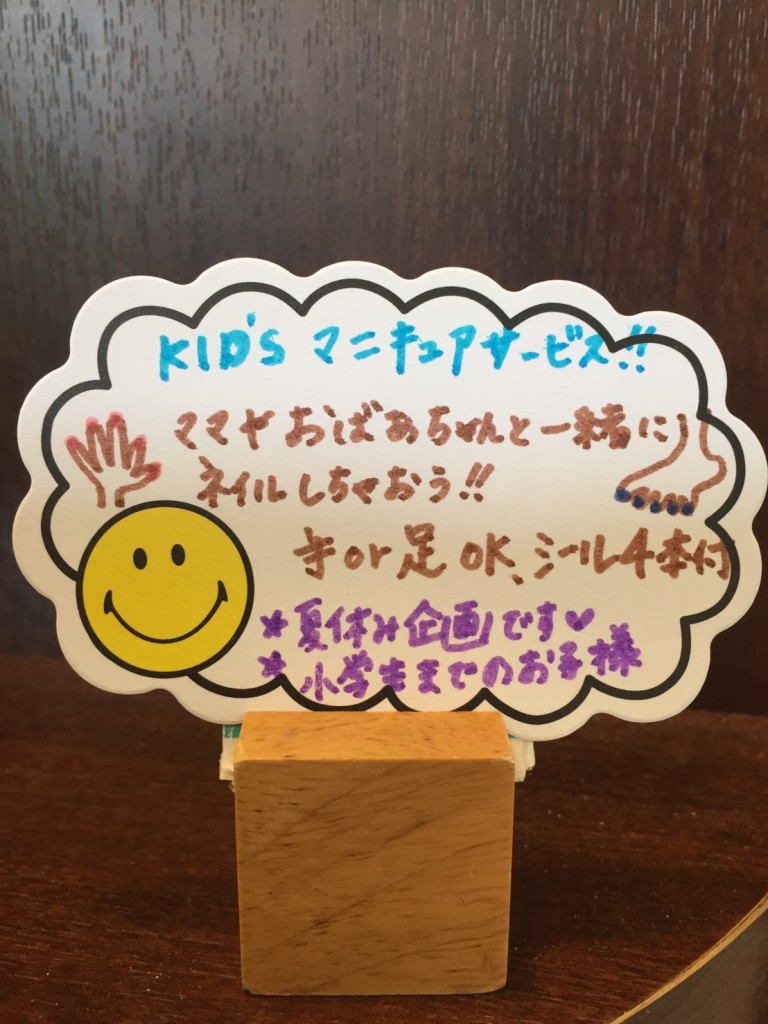 KID'S マニキュアサービス!!
ママやおばあちゃんと一緒に
ネイルしちゃおう!!
手or足OK、シール4本付
*夏休み企画です♥
*小学生までのお子様